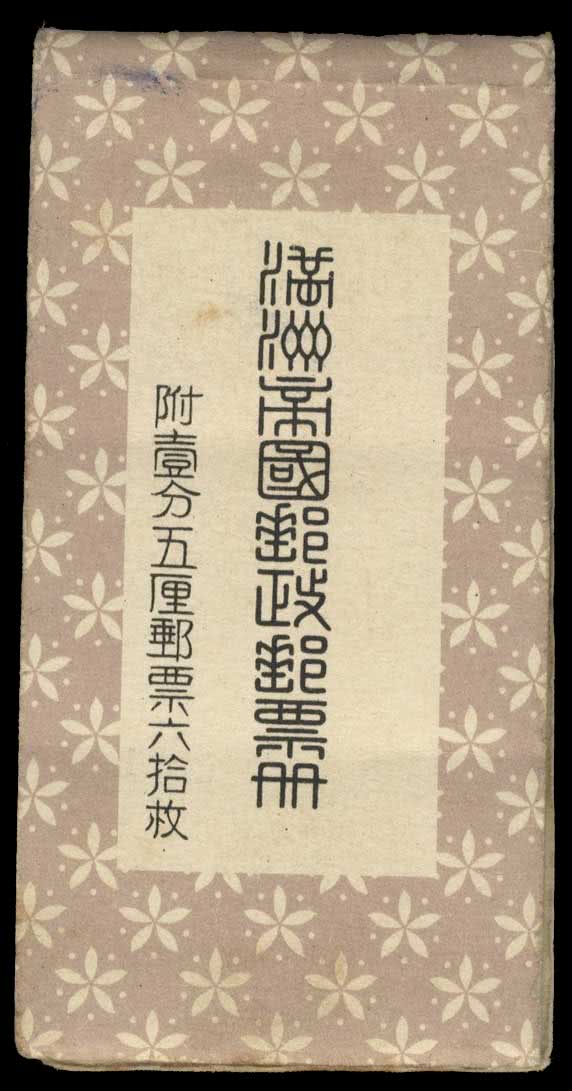 滿洲帝國郵政郵票册
附壹分五厘郵票六拾枚